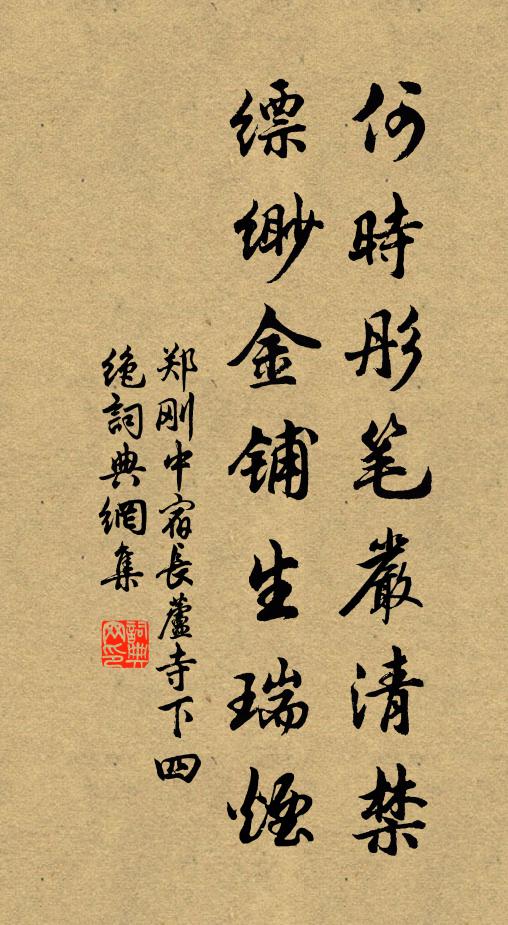 何時彤笔嚴清禁
縹緲金鋪生瑞煙
郑刚中宿長蘆寺下四
絶詞典網集
詞典网印